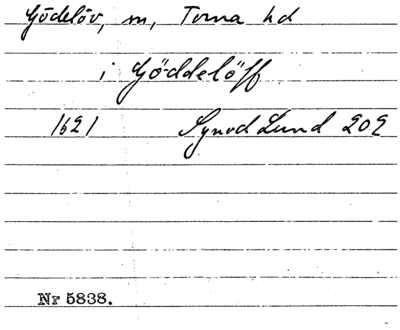 Gödelöv, sn, Torna hd
i Göddelöff
1621 Synod Lund 202
Nr 5838.